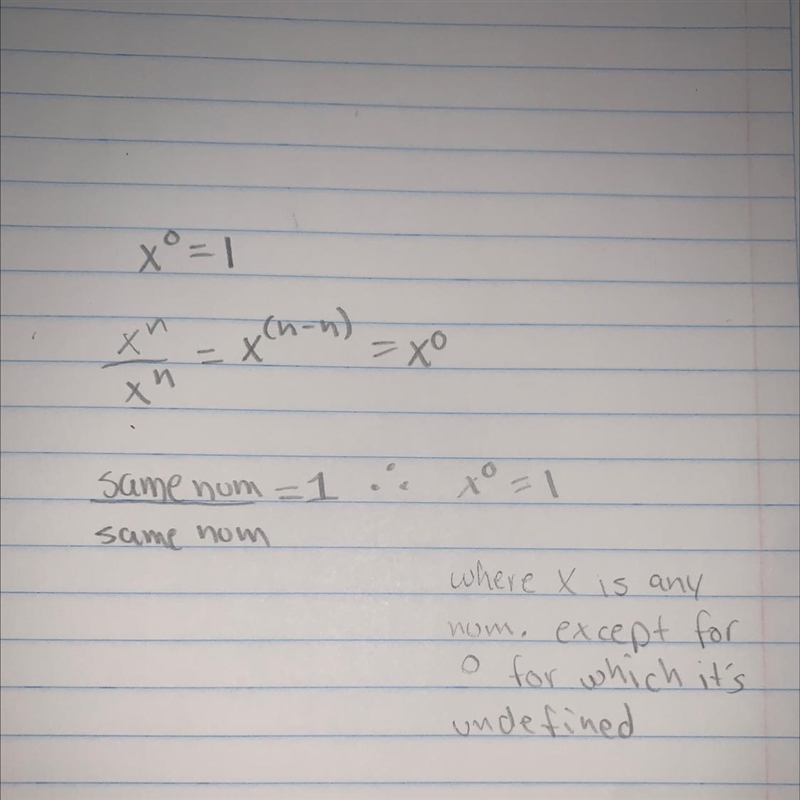 x⁰ = 1
xⁿ/xⁿ = x⁽ⁿ⁻ⁿ⁾ = x⁰
same num/same num = 1 ∴ x⁰ = 1
where x is any
num. except for
0 for which it's
undefined